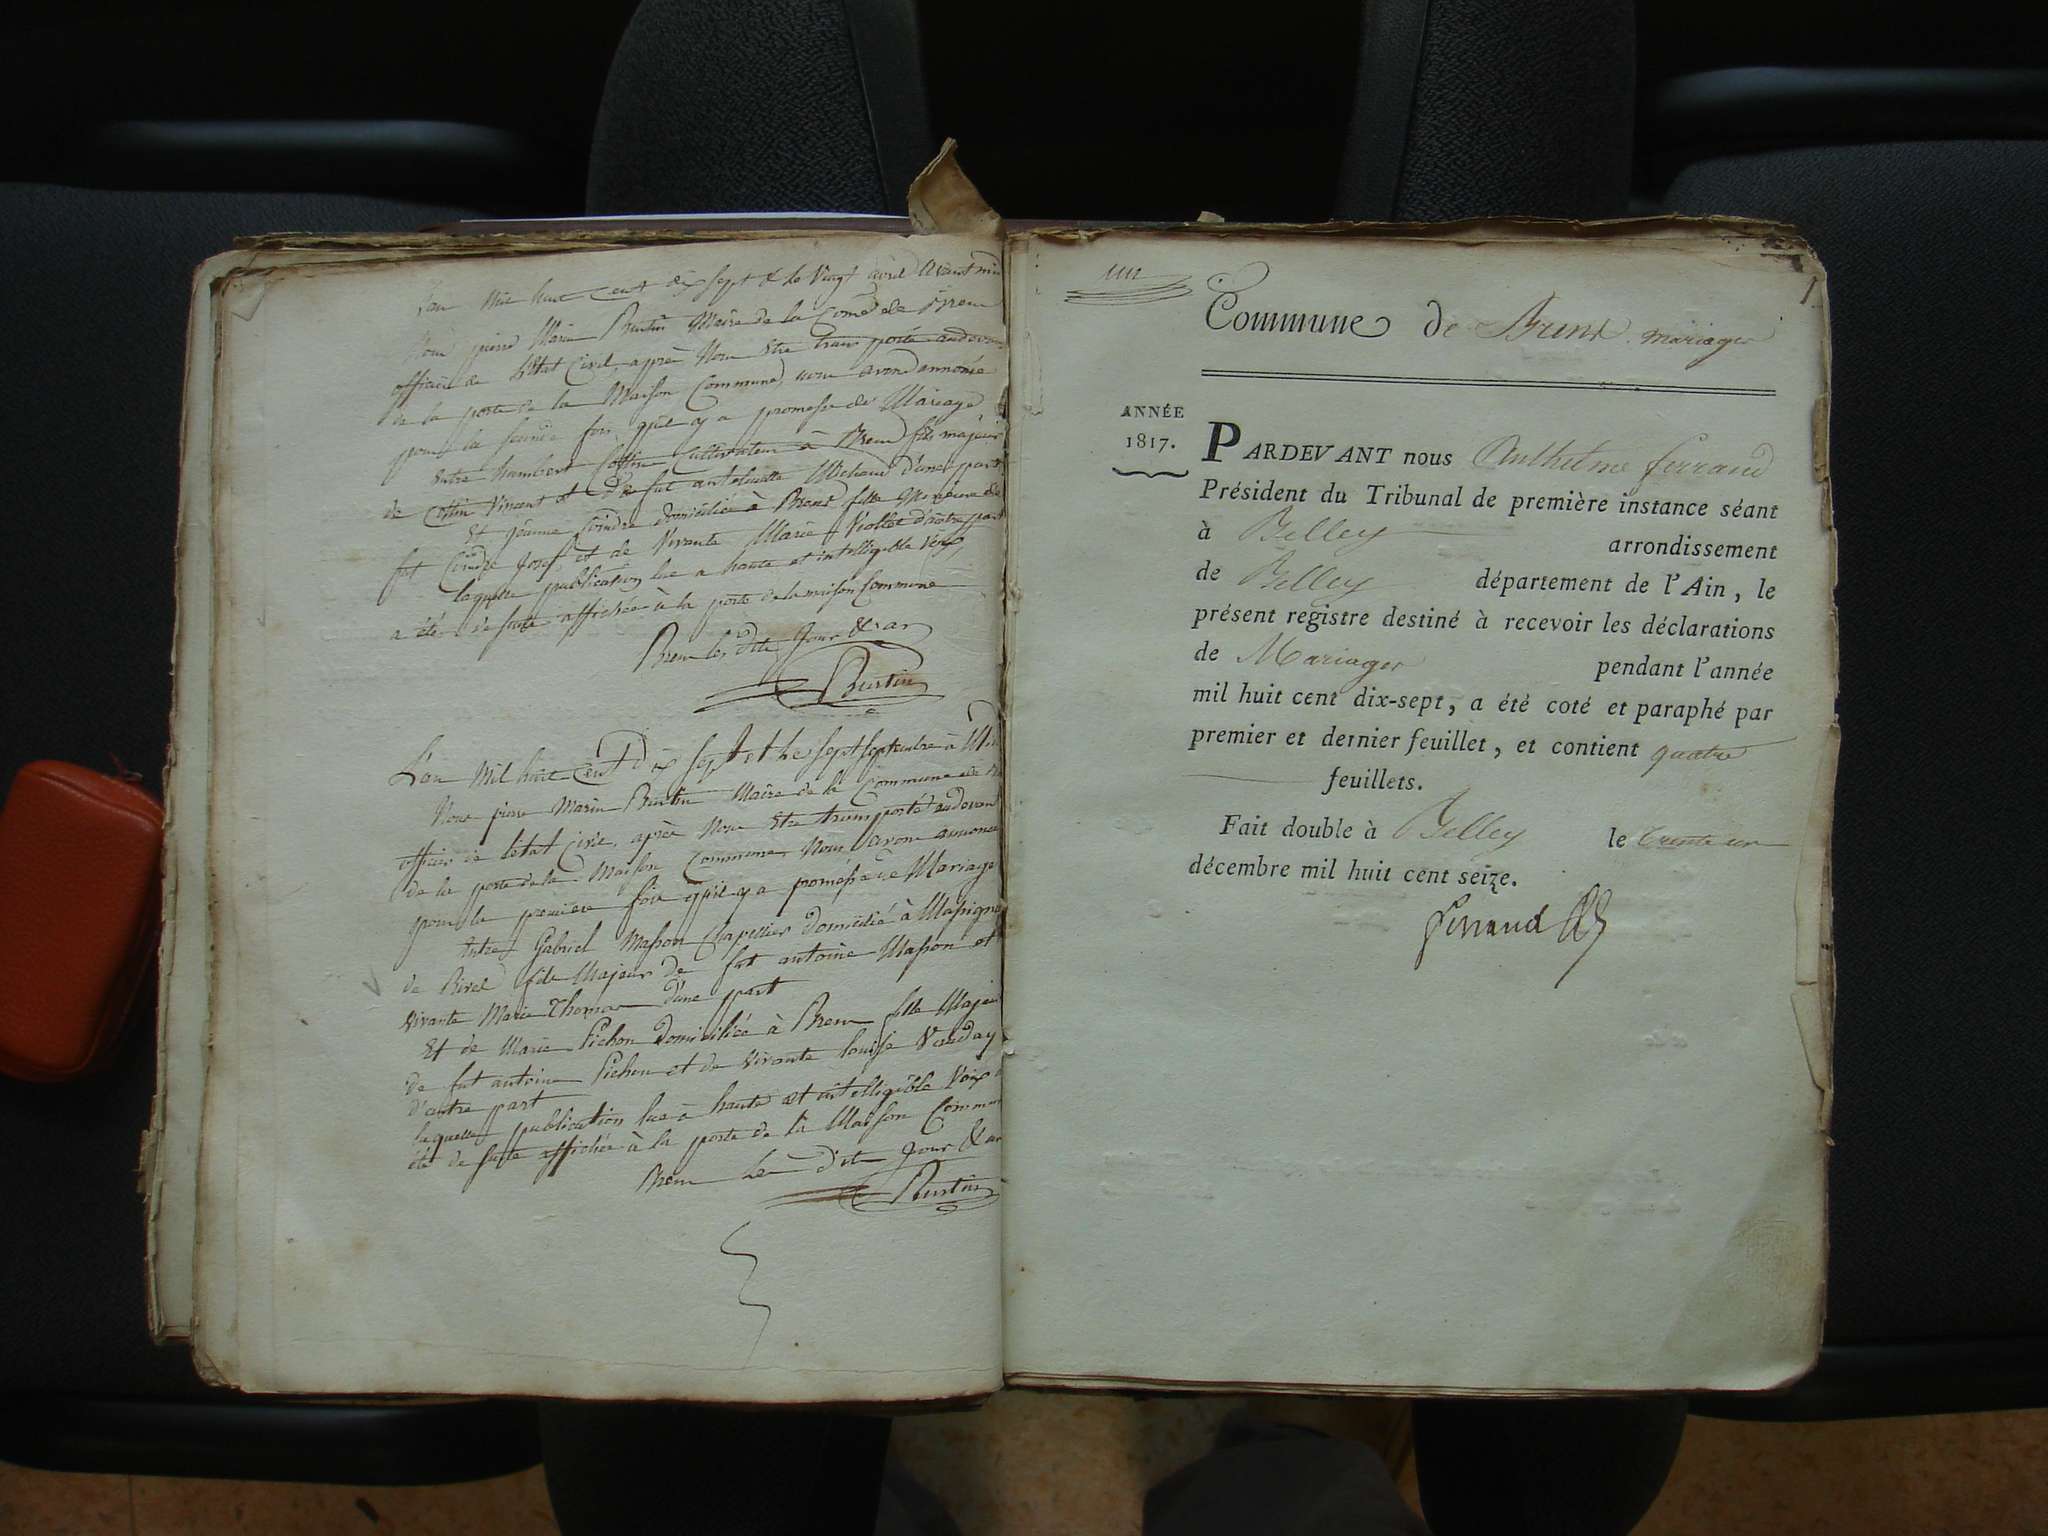 L'an mil huit cent dix sept & le vingt avril avant mi
Nous pierre Marin Burtin Maire de la Come de Bren
officier de L'état Civil, après Nous Etre transporté audevan
de la porte de la Maison Commune, nous avons annoncé
pour la seconde fois qu'il y a promesse de Mariage
Entre humbert Cottin Cultivateur à Bren fils majeur
de Cottin Vincent et de fut antelmette Michaud d'une part
Et jeanne Cindre domiciliée à Brens fille Mineure de
fut Cindre Josef et de Vivante Marie Viollet d'autre part
laquelle publication lue a haute et intelligible Voix,
a été de suite affichée à la porte de la maison Commune
Bren les dits Jour & an
Burtin
L'an Mil huit Cent Dix Sept et le sept septembre à Mi
Nous pierre Marin Burtin Maire de la Commune de
officier de letat Civil, après Nous Etre transporté audevant
de la porte de la Maison Commune, Nous avons annoncé
pour la premiere fois qu'il y a promesse de Mariage
Entre Gabriel Masson Chapellier domicilié à Massigne
de Rivel fils Majeur de fut antoine Masson et
vivante Marie Thomas d'une part
Et de Marie Pichon domiciliée à Bren fille Majeu
de fut antoine Pichon et de vivante louise Varday
d'autre part
laquelle publication lue à haute et intelligible Voix a
été de suite affichée à la porte de la Maison Commun
Bren Les dits Jour & an
Burtin
1
Commune de Brens. mariages
ANNÉE
1817.
PARDEVANT nous Anthelme ferrand
Président du Tribunal de première instance séant
à Belley arrondissement
de Belley département de l'Ain, le
présent registre destiné à recevoir les déclarations
de Mariages pendant l'année
mil huit cent dix-sept, a été coté et paraphé par
premier et dernier feuillet, et contient quatre
feuillets.
Fait double à Belley le trente un
décembre mil huit cent seize.
ferrand